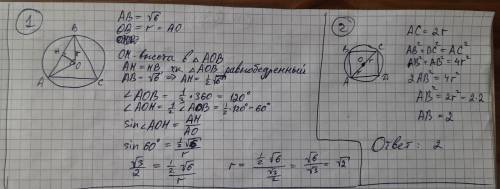 1
B
H
O
A
C
AB = √6
OB = r = AO
OH - высота в △AOB
AH = HB т.к. △AOB равнобедренный
AB = √6 ⇒ AH = 1/2 √6
∠AOB = 1/3 · 360 = 120°
∠AOH = 1/2 ∠AOB = 1/2 · 120 = 60°
sin∠AOH = AH/AO
sin 60° = (1/2 √6)/r
√3/2 = (1/2 √6)/r
r = (1/2 √6)/(√3/2) = √6/√3 = √2
2
B
C
O
r
A
D
AC = 2r
AB² + BC² = AC²
AB² + AB² = 4r²
2AB² = 4r²
AB² = 2r² = 2·2
AB = 2
Ответ: 2